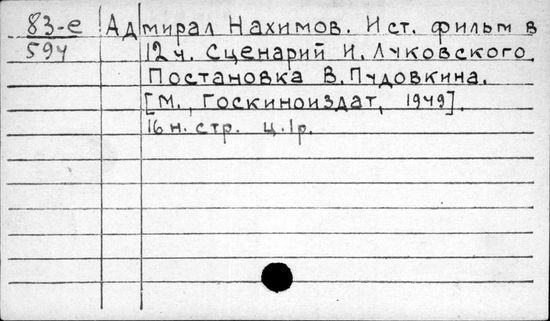 83-е Адмирал Нахимов. Ист. фильм в
594 12 ч. Сценарий И. Луковского.
Постановка В. Пудовкина.
[М., Госкиноиздат, 1949].
16 н. стр. ц. 1 р.